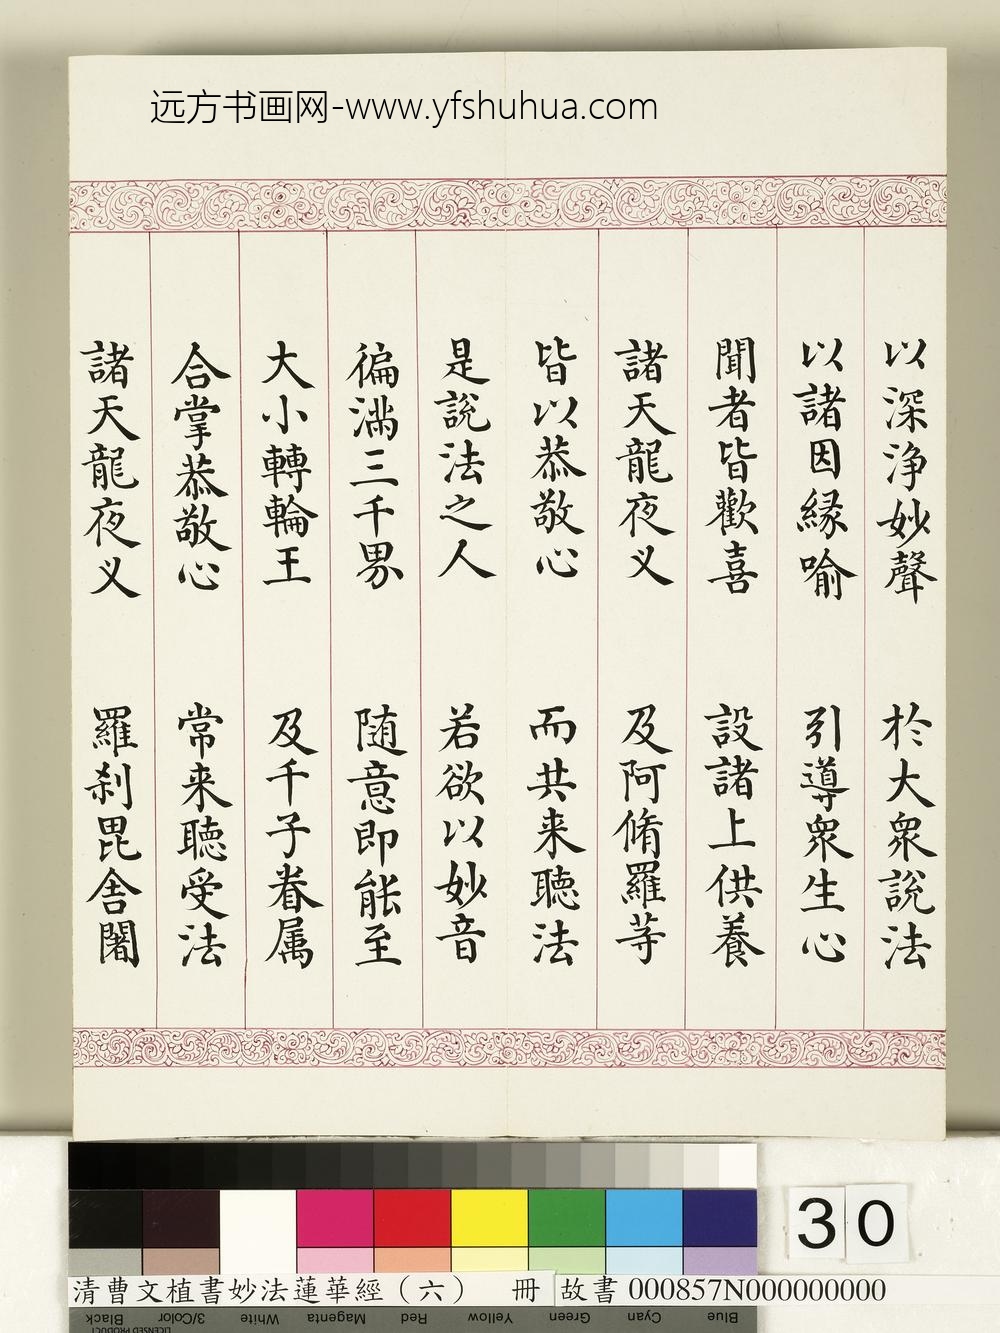 远方书画网-www.yfshuhua.com
以深浄妙聲 於大衆說法
以諸因縁喻 引導衆生心
聞者皆歡喜 設諸上供養
諸天龍夜义 及阿脩羅䓁
皆以恭敬心 而共来聽法
是說法之人 若欲以妙音
徧满三千界 随意即能至
大小轉輪王 及千子眷属
合掌恭敬心 常来聽受法
諸天龍夜义 羅刹毘舍闍
30
清曹文植書妙法蓮華經（六） 冊 故書 000857N000000000
Black 3/Color White Magenta Red Yellow Green Cyan Blue
LICENSED PRODUCT